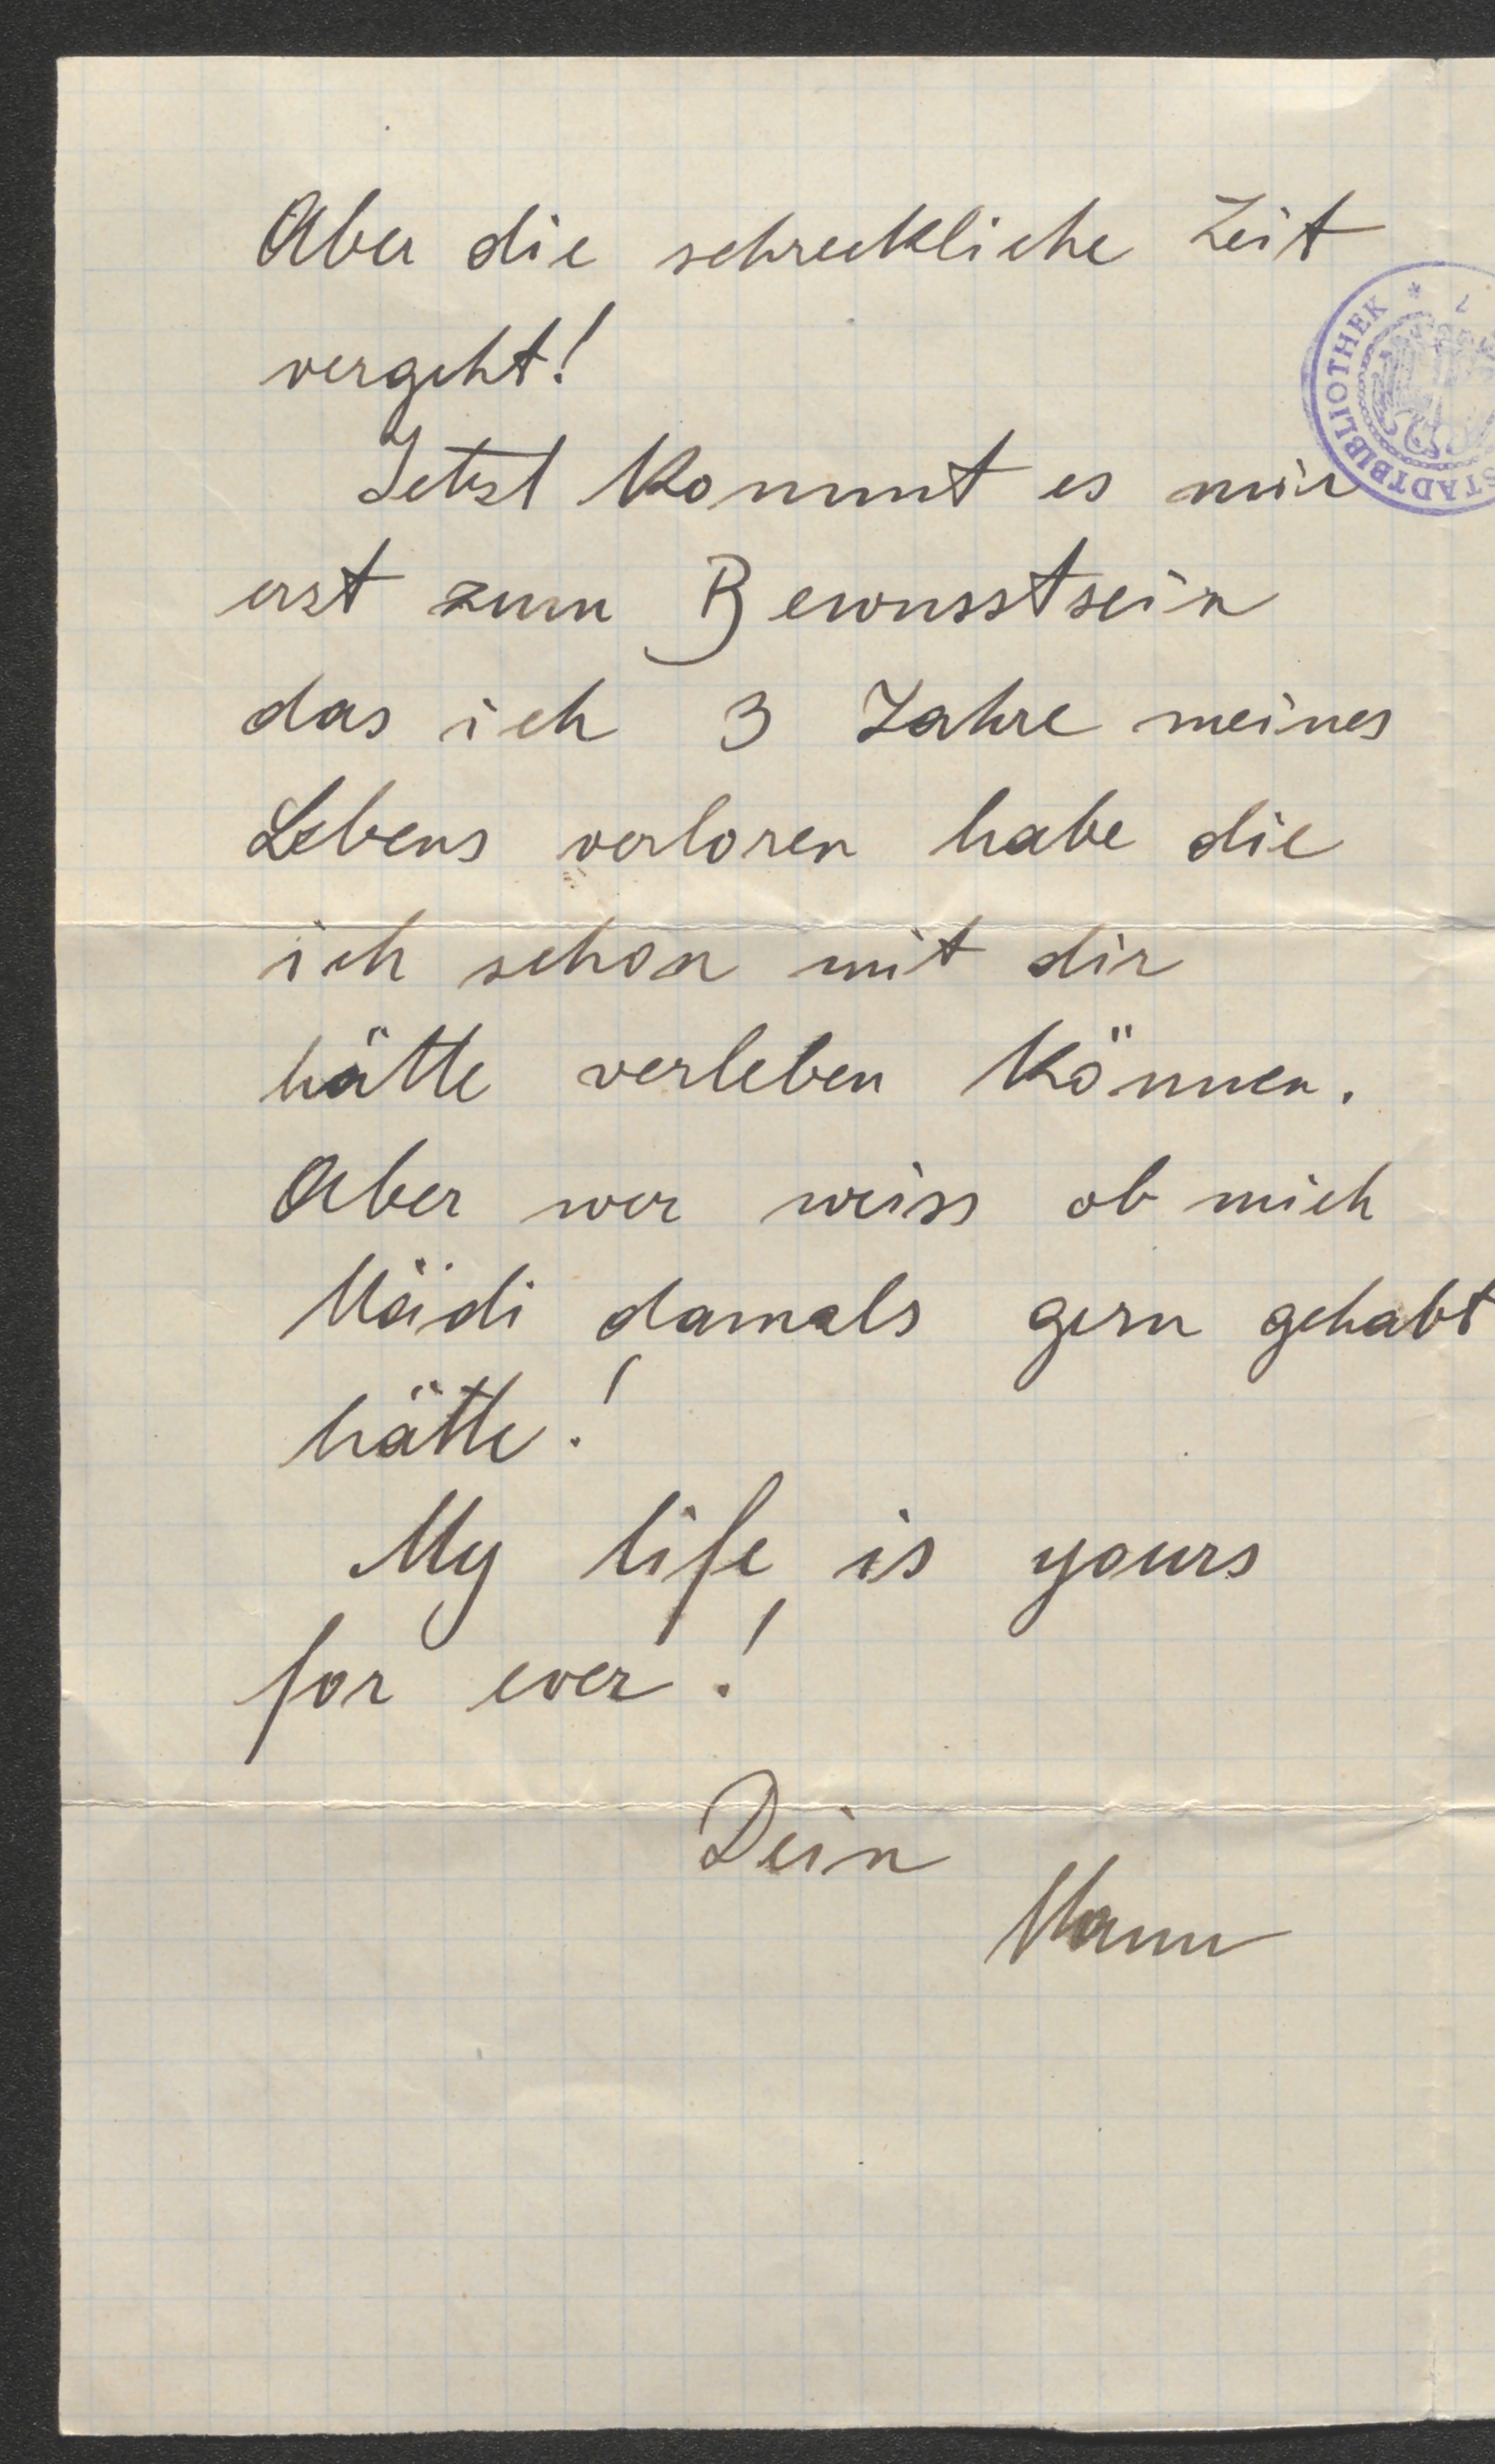 Aber die schreckliche Zeit
vergeht!
Jetzt kommt es mir
erst zum Bewusstsein
das ich 3 Jahre meines
Lebens verloren habe die
ich schon mit dir
hätte verleben können.
Aber wer weiss ob mich
Mädi damals gern gehabt
hätte!
My life is yours
for ever!
Dein
Mann
STADTBIBLIOTHEK *